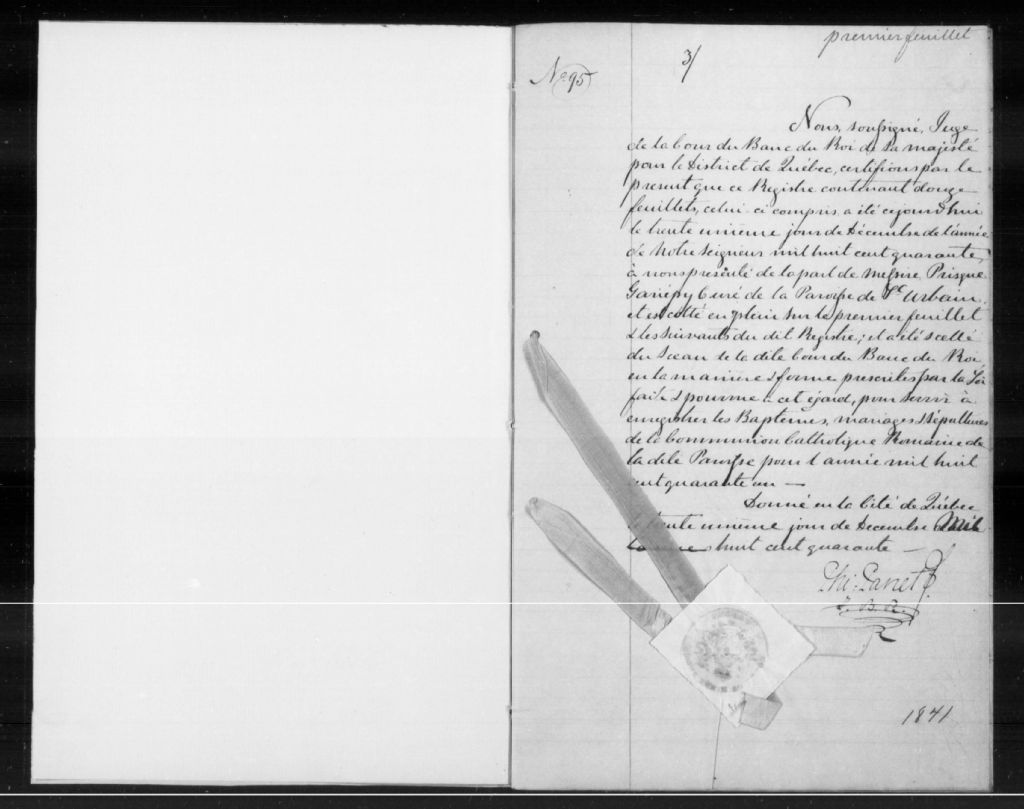 premier feuillet
3/
No 95
Nous, soussigné, Juge
de la Cour du Banc du Roi de Sa majesté
pour le District de Québec, certifions par le
present que ce Registre contenant douze
feuillets, celui-ci compris, a été cejourd'hui
le trente unieme jour de Décembre de l'année
de Notre Seigneur mil huit cent quarante,
à nous presénté de la part de Messire Prisque
Gariépy Curé de la Paroisse de St Urbain,
et est cotté en plein sur le premier feuillet
& les suivants du dit Registre; et a été scellé
du Sceau de la dite Cour du Banc du Roi
en la maniere & forme prescrites par la Loi
faite & pourvue à cet égard, pour servir à
enregistrer les Baptemes, mariages & Sépultures
de la Communion Catholique Romaine de
la dite Paroisse pour l'année mil huit
cent quarante un —
Donné en la Cité de Québec
le trente unieme jour de Decembre Mil
huit cent quarante —
Ph: Panet J.
B. R.
1841